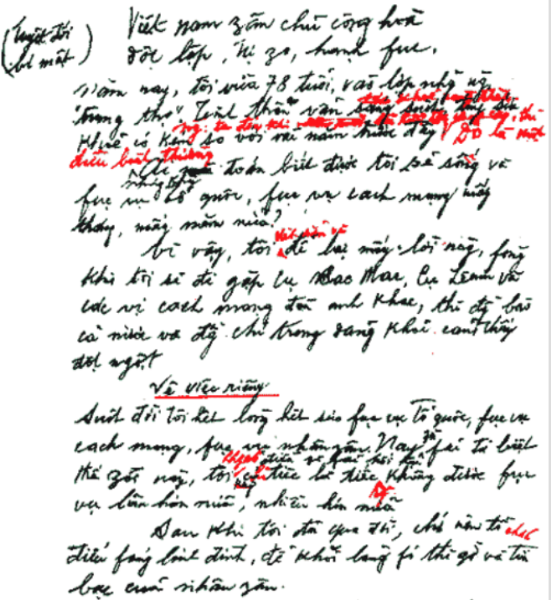 (Tuyệt đối
bí mật)
Việt nam zân chủ cộng hoà
độc lập, tự zo, hạnh fúc.
Năm nay, tôi vừa 78 tuổi, vào lớp những người
"trung thọ". Tinh thần vẫn sáng suốt, tuy sức
khoẻ có kém so với vài năm trước đây. Đó là một
điều bình thường
Nhưng ai mà đoán biết được tôi sẽ sống và
fục vụ tổ quốc, fục vụ cách mạng mấy
tháng, mấy năm nữa?
Vì vậy, tôi để lại mấy lời này, fòng
khi tôi sẽ đi gặp cụ Các Mác, Cụ Lênin và
các vị cách mạng đàn anh khác, thì đồng bào
cả nước và đồng chí trong đảng khỏi cảm thấy
đột ngột.
Về việc riêng
Suốt đời tôi hết lòng hết sức fục vụ Tổ quốc, fục vụ
cách mạng, fục vụ nhân zân. Nay zù fải từ biệt
thế zới này, tôi không có điều gì fải hối hận, chỉ tiếc là tiếc không được fục
vụ lâu hơn nữa, nhiều hơn nữa
Sau khi tôi đã qua đời, chớ nên tổ chức
điếu fúng linh đình, để khỏi lãng fí thì giờ và tiền
bạc của nhân zân.